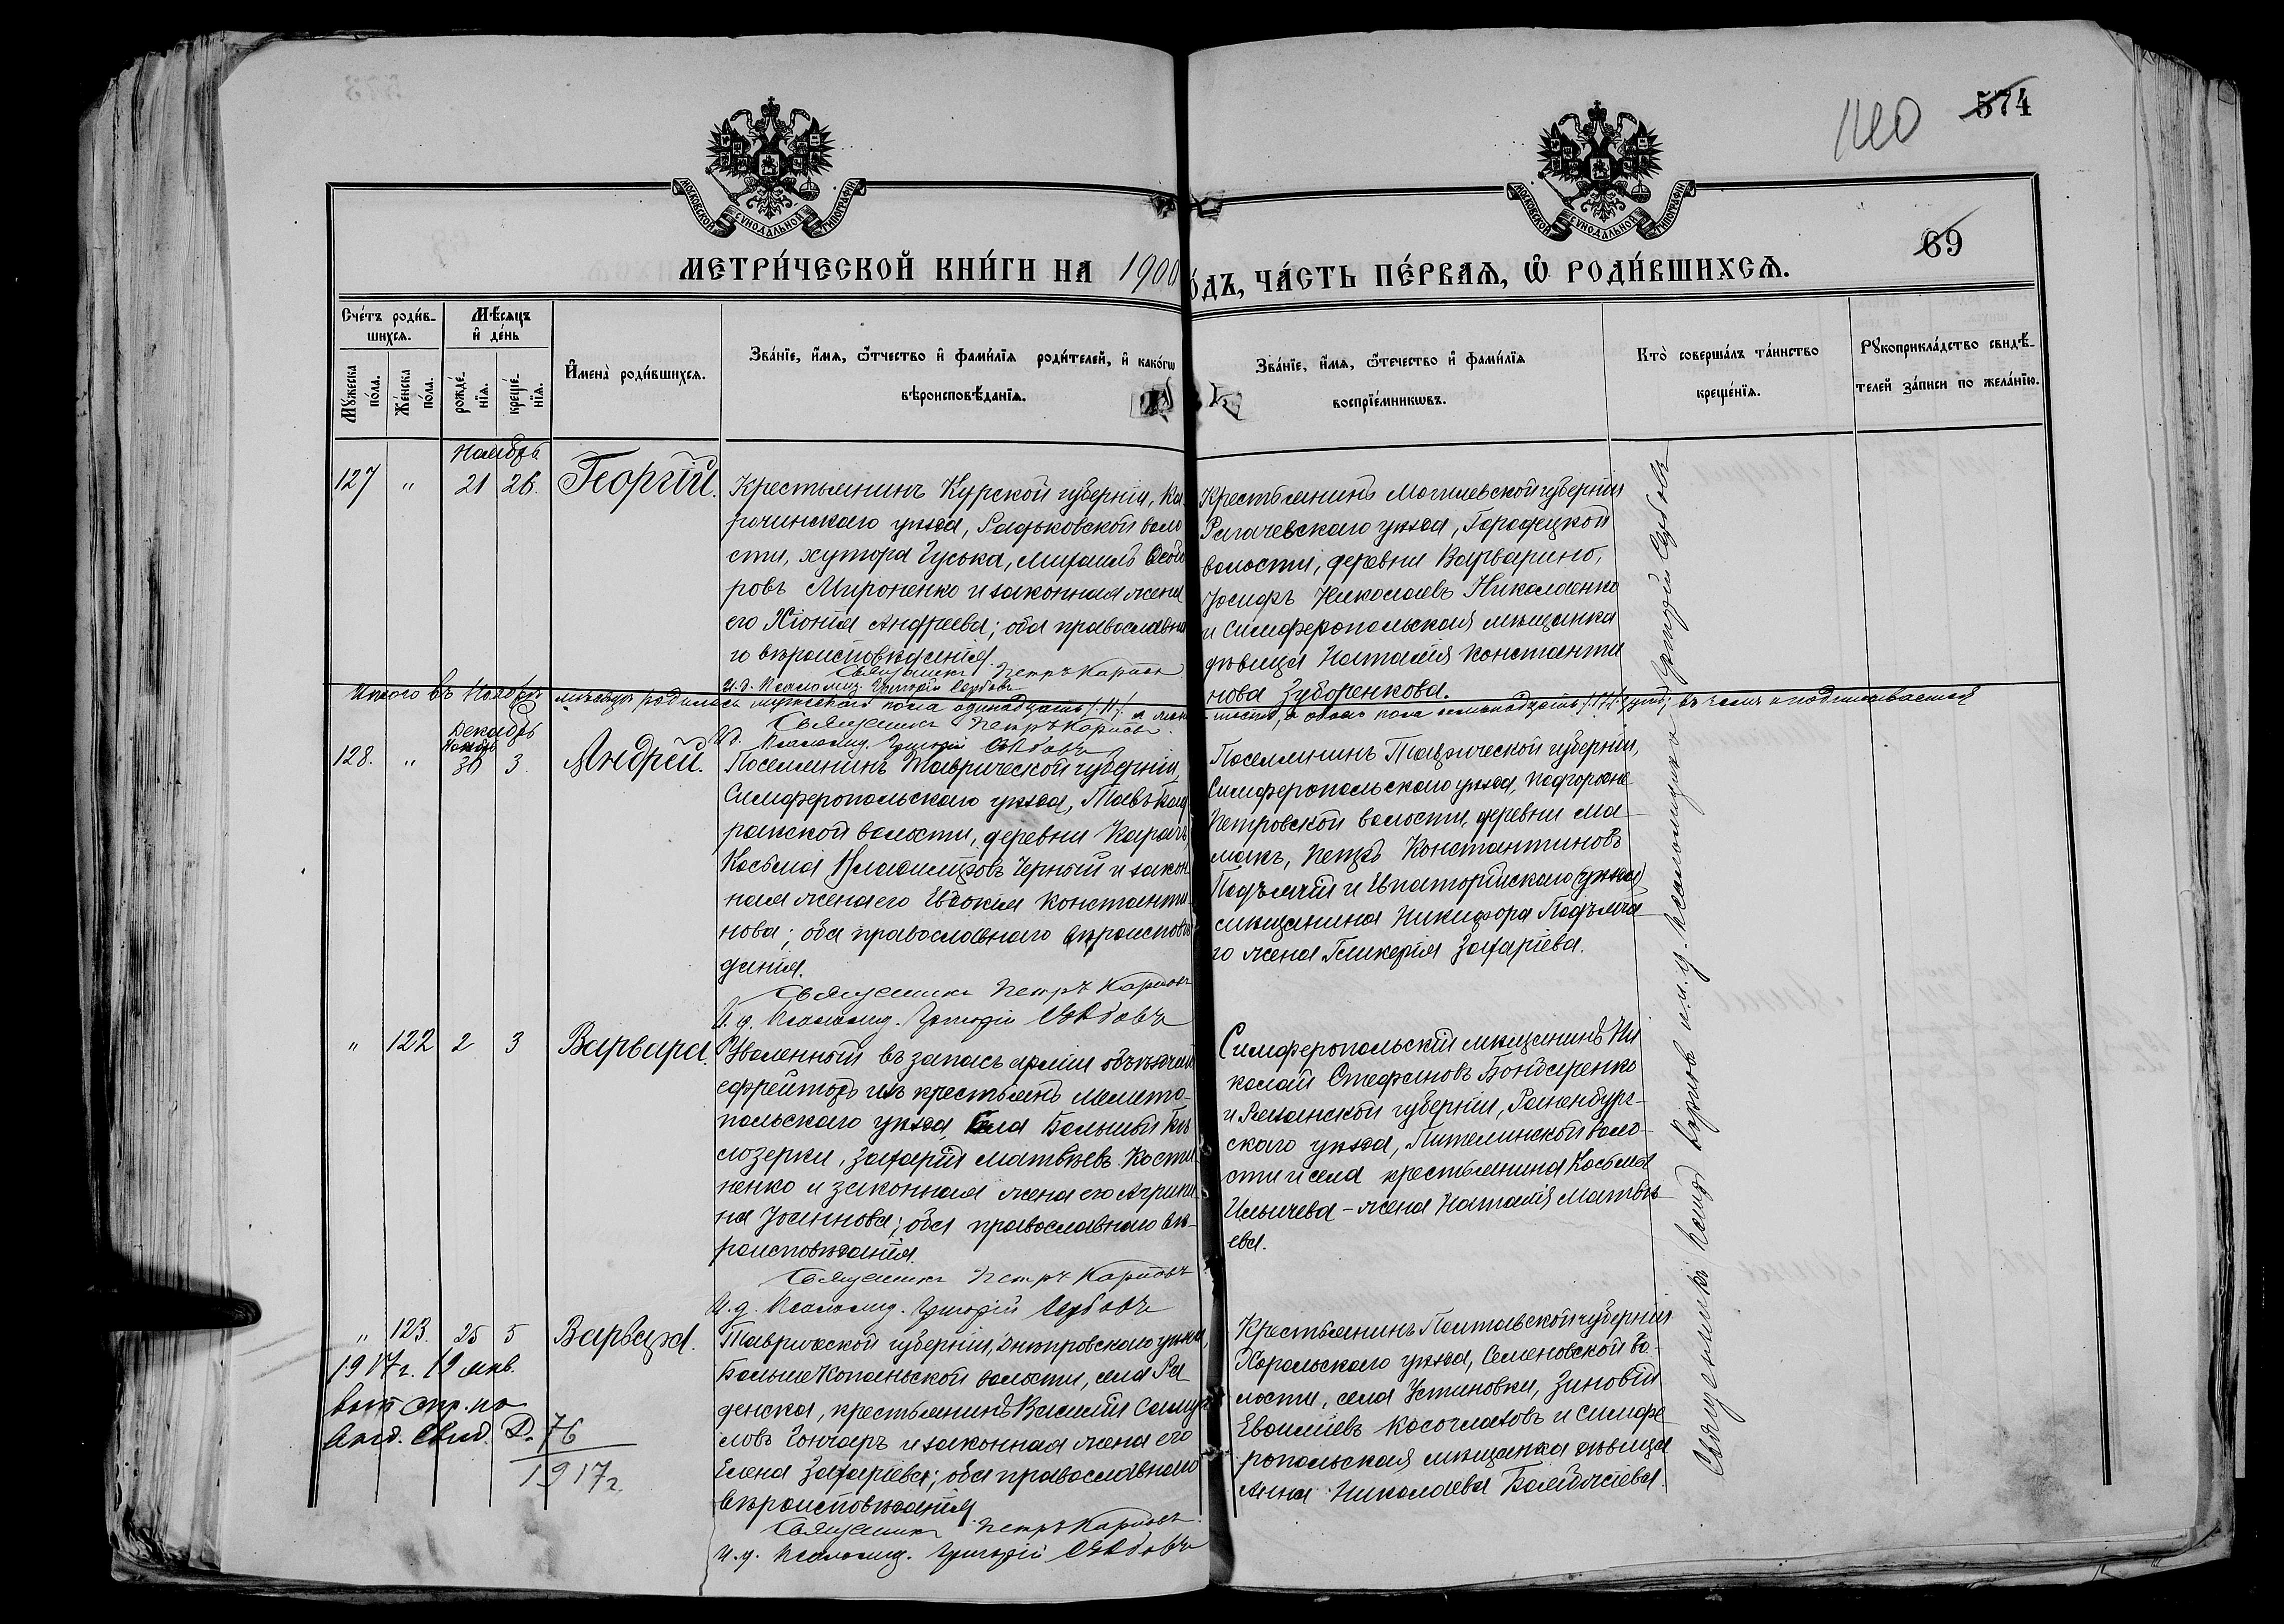 574
140
69
МОСКОВСКОЙ СѴНОДАЛЬНОЙ ТИПОГРАФІИ
МОСКОВСКОЙ СѴНОДАЛЬНОЙ ТИПОГРАФІИ
МЕТРИ́ЧЕСКОЙ КНИ́ГИ НА 1900
О́ДЪ, ЧА́СТЬ ПЕ́РВАѦ, Ѡ҆ РОДИ́ВШИХСѦ.
Сче́тъ роди́в-
шихсѧ.
Мꙋ́жеска по́ла.
Же́нска по́ла.
Мѣ́сѧцъ
и҆ де́нь
рожде́-
нїѧ.
креще́-
нїѧ.
И҆мена̀ роди́вшихсѧ.
Зва́нїе, и҆́мѧ, ѻ҆́тчество и҆ фами́лїѧ роди́телей, и҆ како́гѡ
вѣроисповѣ́данїѧ.
Зва́нїе, и҆́мѧ, ѻ҆́течество и҆ фами́лїѧ
воспрїе́мникѡвъ.
Кто̀ соверша́лъ та́инство
креще́нїѧ.
Рꙋкоприкла́дство свидѣ́-
телей за́писи по жела́нїю.
Ноябрь
127 " 21 26. Георгій.
Крестьянинъ Курской губерніи, Ко
рочинскаго уѣзда, Радьковской воло
сти, хутора Гуська, Михаилъ Ѳедо
ровъ Мироненко и законная жена
его Хіонія Андреева; оба православна
го вѣроисповѣданія.
Священникъ Петръ Карповъ
И. д. Псаломщ. Григорій Сербовъ
Крестьянинъ Могилевской губерніи
Рагачевскаго уѣзда, Городецкой
волости, деревни Варварино,
Іосифъ Николаевъ Николаенко
и Симферопольская мѣщанка
дѣвица Наталія Константи
нова Зуборенкова.
Итого въ Ноябрѣ мѣсяцѣ родилось мужескаго пола одинадцать /11/, а жен-
шесть, а обоего пола семнадцать /17/ душъ; въ чемъ и подписываемся
Священникъ Петръ Карповъ
И. д. Псаломщ. Григорій Сербовъ
Декабрь
Ноябрь
128. " 30 3. Андрей.
Поселянинъ Таврической губерніи,
Симферопольскаго уѣзда, Табъ-Кады
ратской волости, деревни Карачъ
Косьма Владиміровъ Черный и закон
ная жена его Евдокія Константи
нова; оба православнаго вѣроисповѣ
данія.
Священникъ Петръ Карповъ
И. д. Псаломщ. Григорій Сербовъ
Поселянинъ Таврической губерніи,
Симферопольскаго уѣзда, Подгородне
Петровской волости, деревни Ма
макъ, Петръ Константиновъ
Подъячій и Евпаторійскаго (уѣзда)
мѣщанина Никифора Подъяча
го жена Гликерія Захаріева.
" 122 2 3 Варвара.
Уволенный въ запасъ арміи
ефрейторъ изъ крестьянъ Мелито-
польскаго уѣзда, села Большой Бѣ
лозерки, Захарій Матвѣевъ Кости
ненко и законная жена его Агрипи
на Іоаннова; оба православнаго вѣ-
роисповѣданія.
Священникъ Петръ Карповъ
И. д. Псаломщ. Григорій Сербовъ
Симферопольскій мѣщанинъ Ни
колай Стефановъ Бондаренко
и Рязанской губерніи, Раненбург-
скаго уѣзда, Путелинской воло-
сти и села крестьянина Косьмы
Ильичева - жена Наталія Матвѣ
ева.
" 123. 25 5 Варвара.
Таврической губерніи, Днѣпровскаго уѣзда,
Больше Копаньской волости, села Ра
денска, крестьянинъ Василій Самуи
ловъ Гончаръ и законная жена его
Елена Захаріева; оба православнаго
вѣроисповѣданія
Священникъ Петръ Карповъ
И. д. Псаломщ. Григорій Сербовъ
Крестьянинъ Полтавской губерніи
Хорольскаго уѣзда, Семеновской во-
лости, села Устиновки, Зиновій
и Симфе
ропольская мѣщанка дѣвица
Анна Николаева
1917 г. 19 янв.
Свид. Д. 76
1917 г.
Священникъ Петръ Карповъ и и. д. псаломщика Григорій Сербовъ